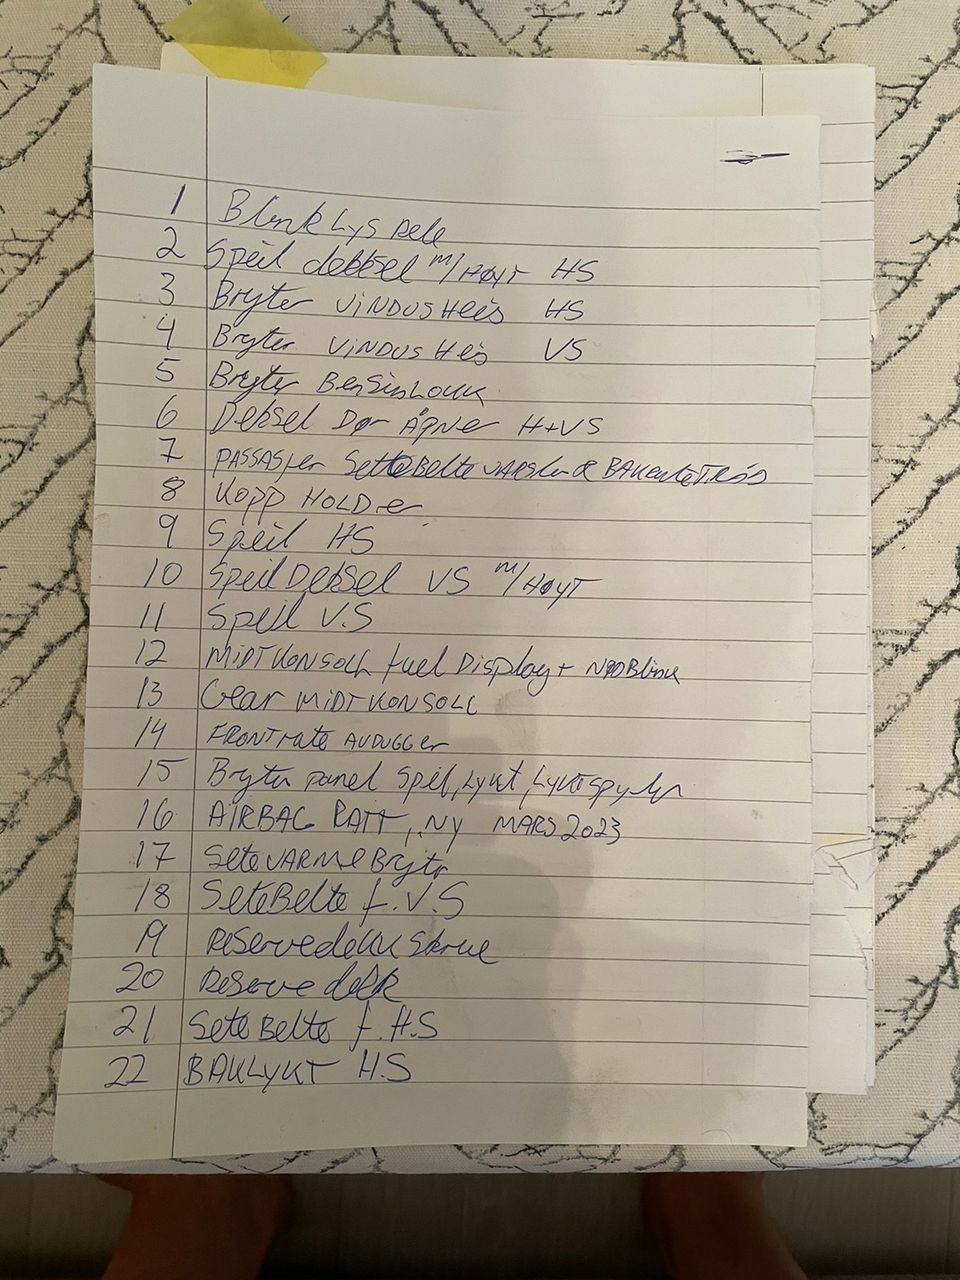 1 Blink Lys Rele
2 Speil deksel m/HØYT HS
3 Bryter ViNDUSHeis HS
4 Bryter ViNDUS Heis VS
5 Bryter BensinLokk
6 Deksel Dør Åpner H+VS
7 PASSASjer SetteBelte VARSler &
8 Kopp HOLDer
9 Speil HS
10 Speil Deksel VS m/HøyT
11 Speil V.S
12 MiDTKONSOLL fuel Display+ NØDBlink
13 Gear MiDTKONSOLL
14 FRONTrute AVDUGGer
15 Bryter panel Speil, Lykt, Lyktspyler
16 AIRBAG RATT, NY MARS 2023
17 Sete VARMe Bryter
18 SeteBelte f.V.S
19 Reservedekk Skrue
20 Reserve dekk
21 Sete Belte f.H.S
22 BAKLYKT H.S